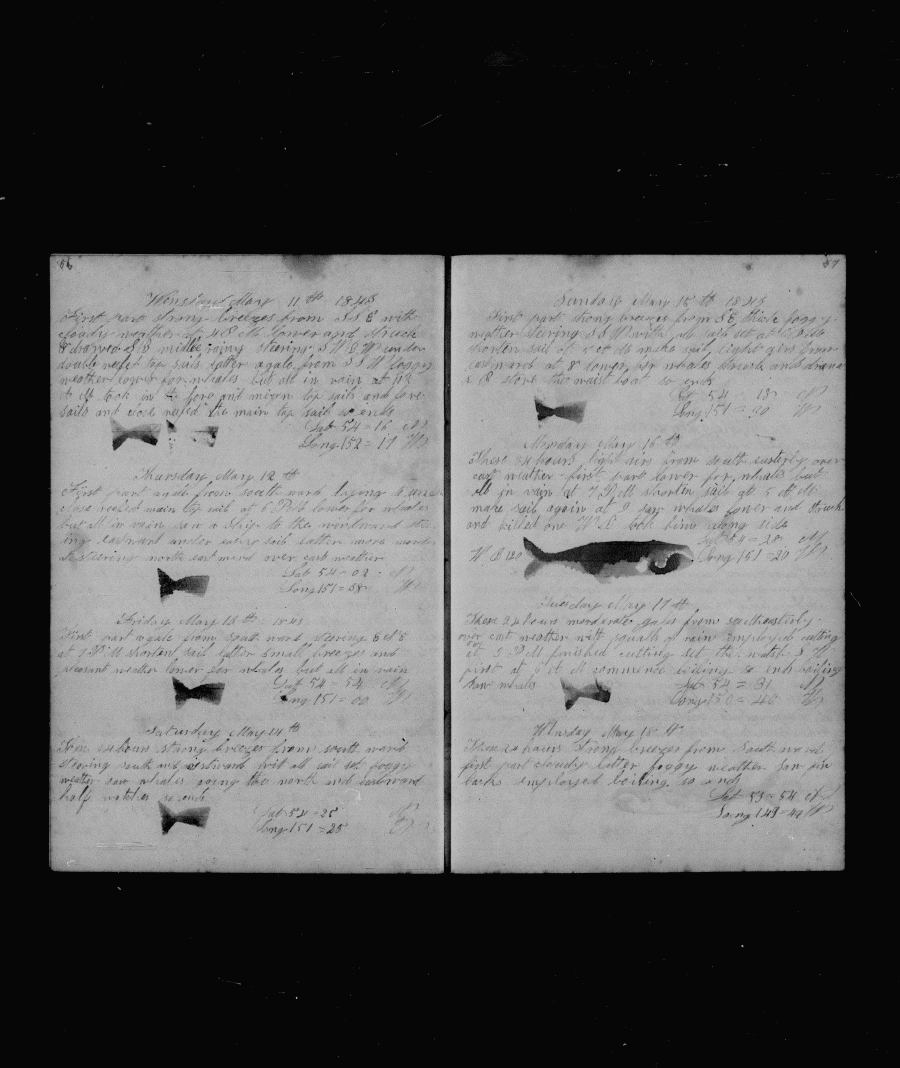 56
Wensday May 11th 1845
First part strong breezes from S S E with
cloudy weather at 4 P M lower and struck
middle rainy steering S W & W under
double reefed top sails latter a gale from S S W foggy
weather lower for whales but all in vain at
took in the fore and mizen top sails and fore
sails and close reefed the main top sail so ends
Lat 54 = 16 N
Long 152 = 17 W
Thursday May 12th
First part a gale from south ward laying
close reefed main top sail at 6 lower for whales
but all in vain saw a Ship to the windward
ing eastward under easy sail latter more moder
steering north eastward over cast weather
Lat 54 = 02 N
Long 151 = 58 W
Friday May 13th 1845
First part a gale from south ward steering E S E
at 7 P M shorten sail latter small breezes and
pleasant weather lower for whales but all in vain
Lat 54 = 54 N
Long 151 = 00 W
Saturday May 14th
These 24 hours strong breezes from south ward
steering south and eastward with all sail set foggy
weather saw whales going the north and eastward
half watches so ends
Lat 54 = 25 N
Long 151 = 25 W
57
Sunday May 15th 1845
First part strong breezes from S E thick foggy
weather steering S S W with all sail set at
shorten sail at 4 A M make sail light airs from
eastward at 8 lower for whales struck and drawed
stove the waist boat so ends
Lat 54 = 18 N
Long 151 = 20 W
Monday May 16th
These 24 hours light airs from south easterly over
cast weather first part lower for whales but
all in vain at 7 P M shorten sail at 5 A M
make sail again at 9 saw whales lower and struck
and killed one took him along side
Lat = 28 N
Long 151 = 20 W
W B 120
Tuesday May 17th
These 24 hours moderate gales from southeasterly
over cast weather with squalls of rain employed cutting
at 9 P M finished cutting set the watch
first at A M commence boiling so ends boiling
saw whales
Lat 54 = 31 N
Long 150 = 40 W
Wensday May 18th
These 24 hours strong breezes from South ward
first part cloudy latter foggy weather saw fin
backs employed boiling so ends
Lat 53 = 54 N
Long 149 = 49 W